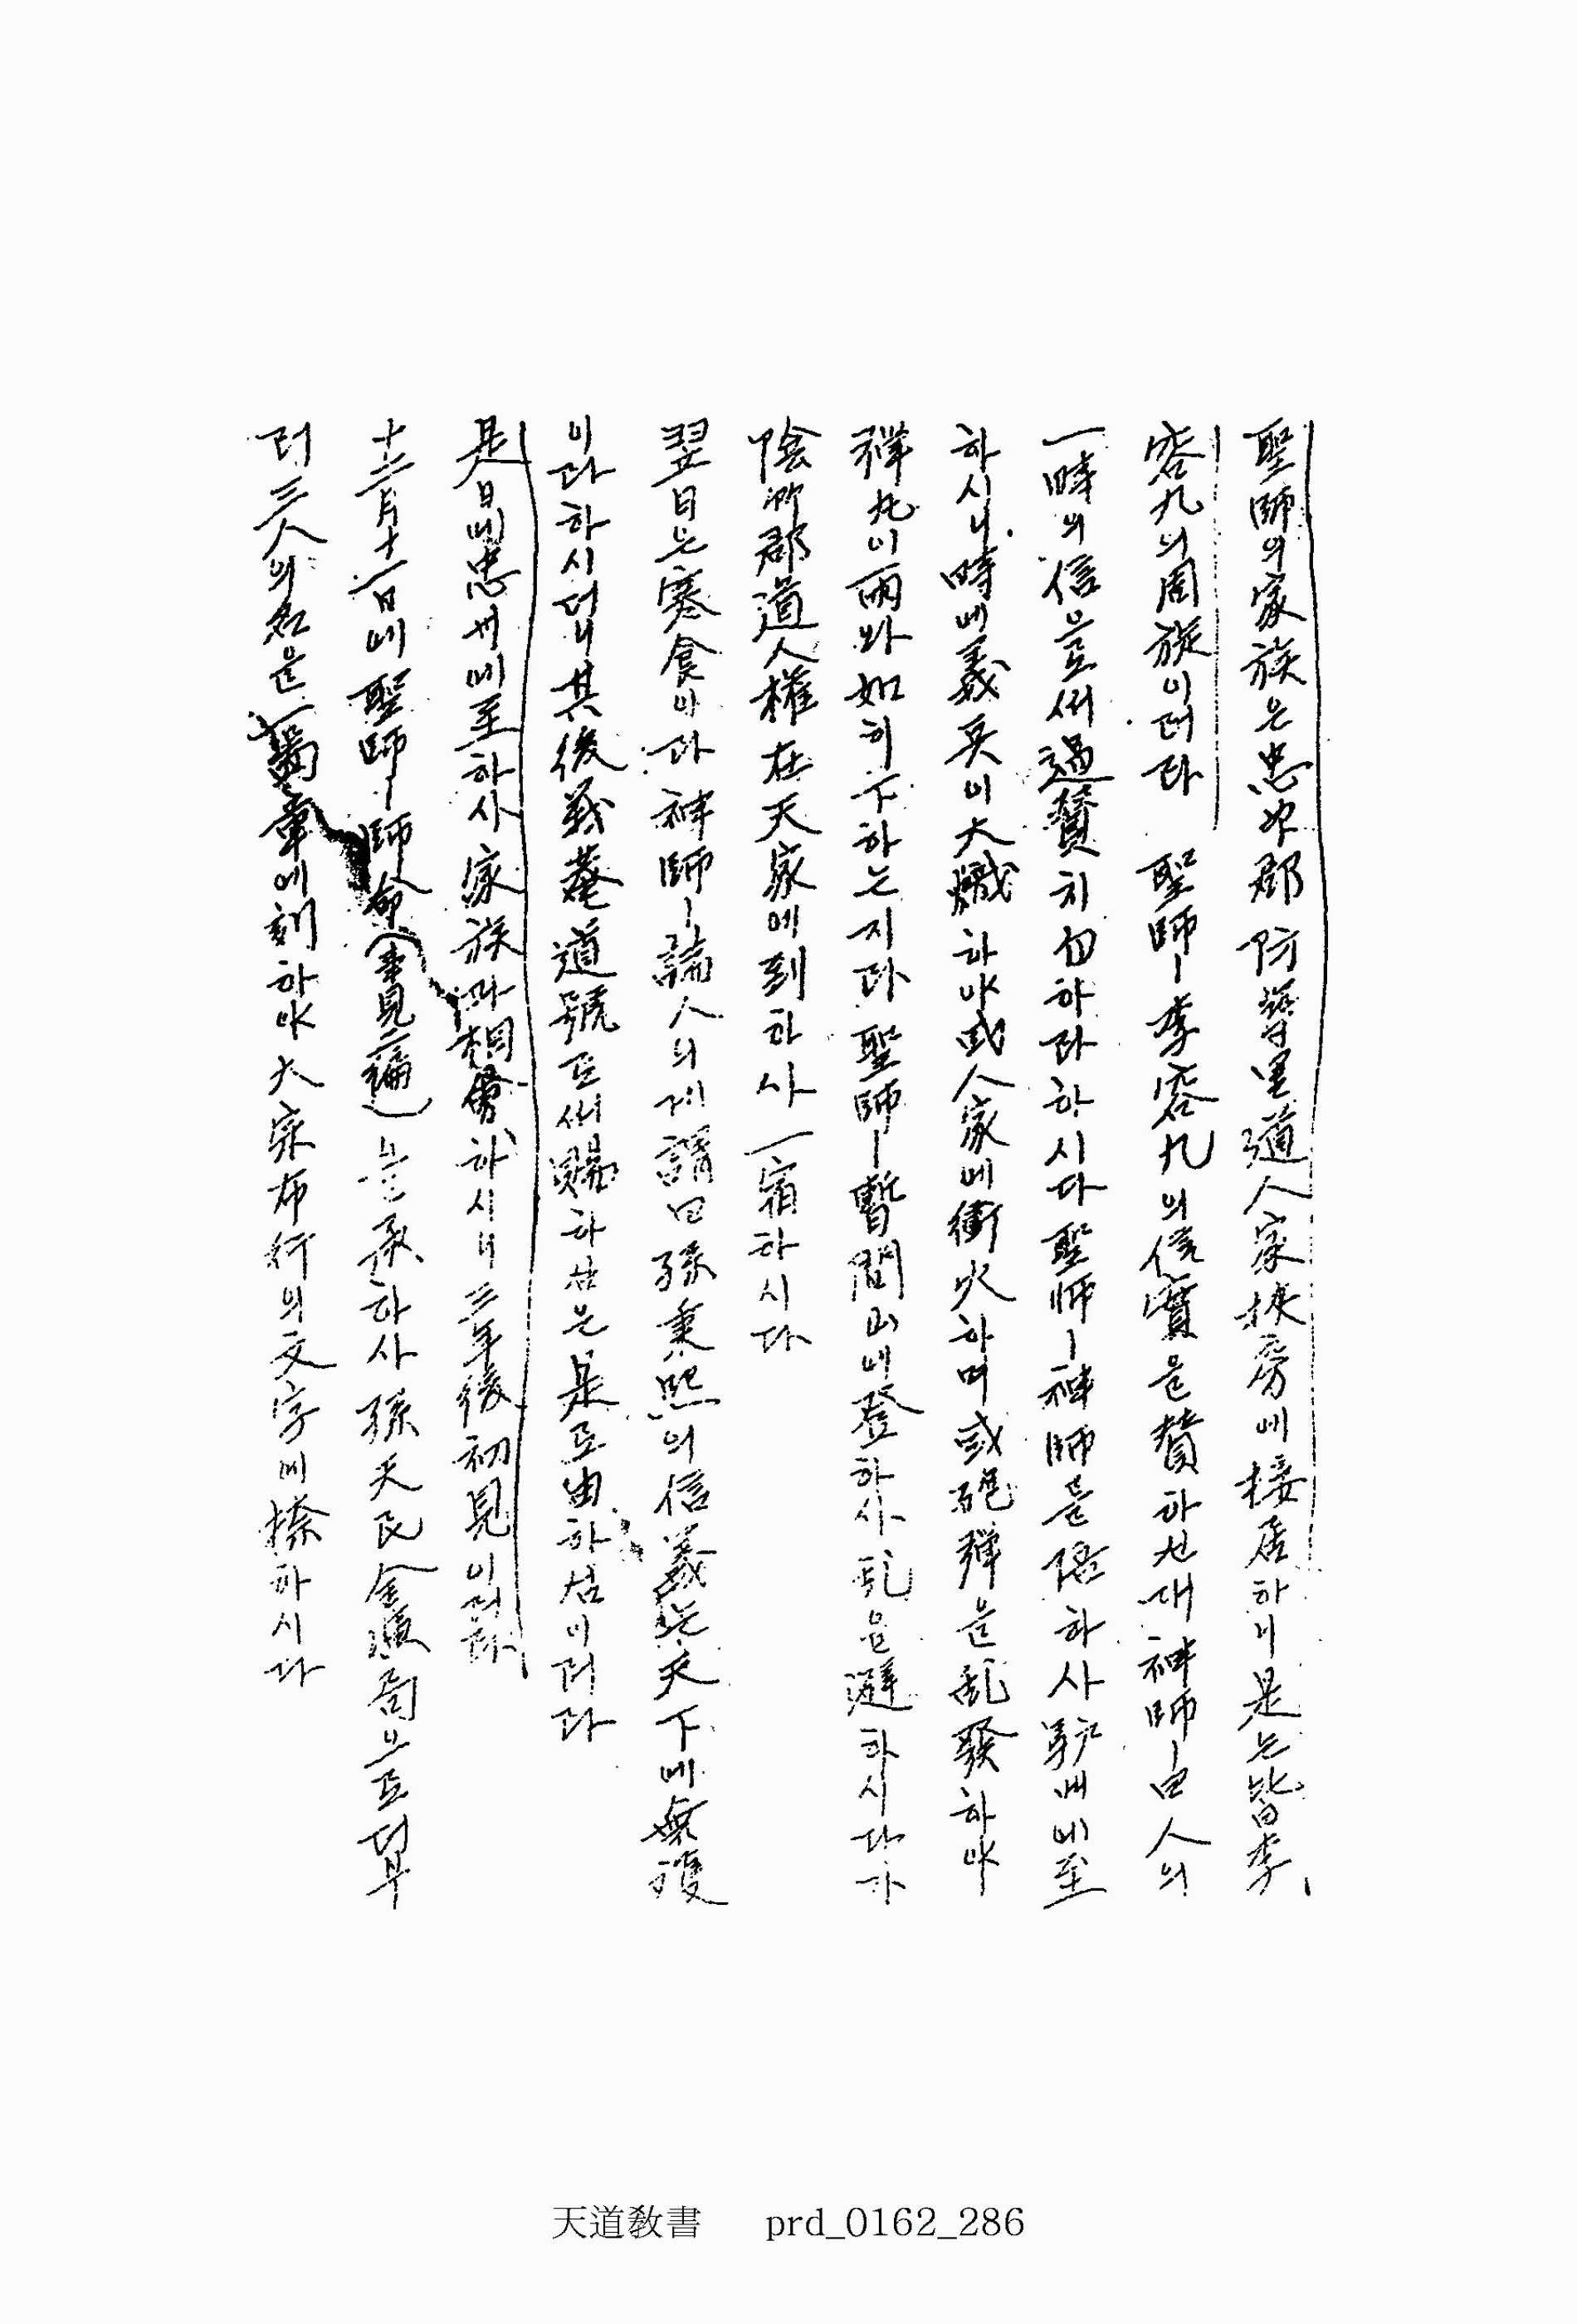 聖師의家族은忠州郡防築里道人家挾房에接居하니是는皆李
容九의周旋이러라 聖師ㅣ李容九의信實을贊하신대神師ㅣ曰人의
一時의信으로써過贊치勿하라하시다聖師ㅣ神師를陪하사에至
하시니時에義兵이大熾하야或人家에衝火하며或砲彈을亂發하야
彈丸이雨와如히下하는지라聖師ㅣ暫間山에登하사乱을避하시다가
陰竹郡道人權在天家에到하사一宿하시다
翌日은寒食이라神師ㅣ諸人의게謂曰孫秉熙의信義는天下에無雙
이라하시더니其後義菴道號로써賜하심은是로由하심이러라
是日에忠州에至하사家族과相會하시니三年後初見이러라
十二月十一日에聖師ㅣ師命(事見二編)을承하사孫天民金演局으로더부
러三人의名을一圖章에刻하야大宗布行의文字에搽하시다
天道敎書 prd_0162_286